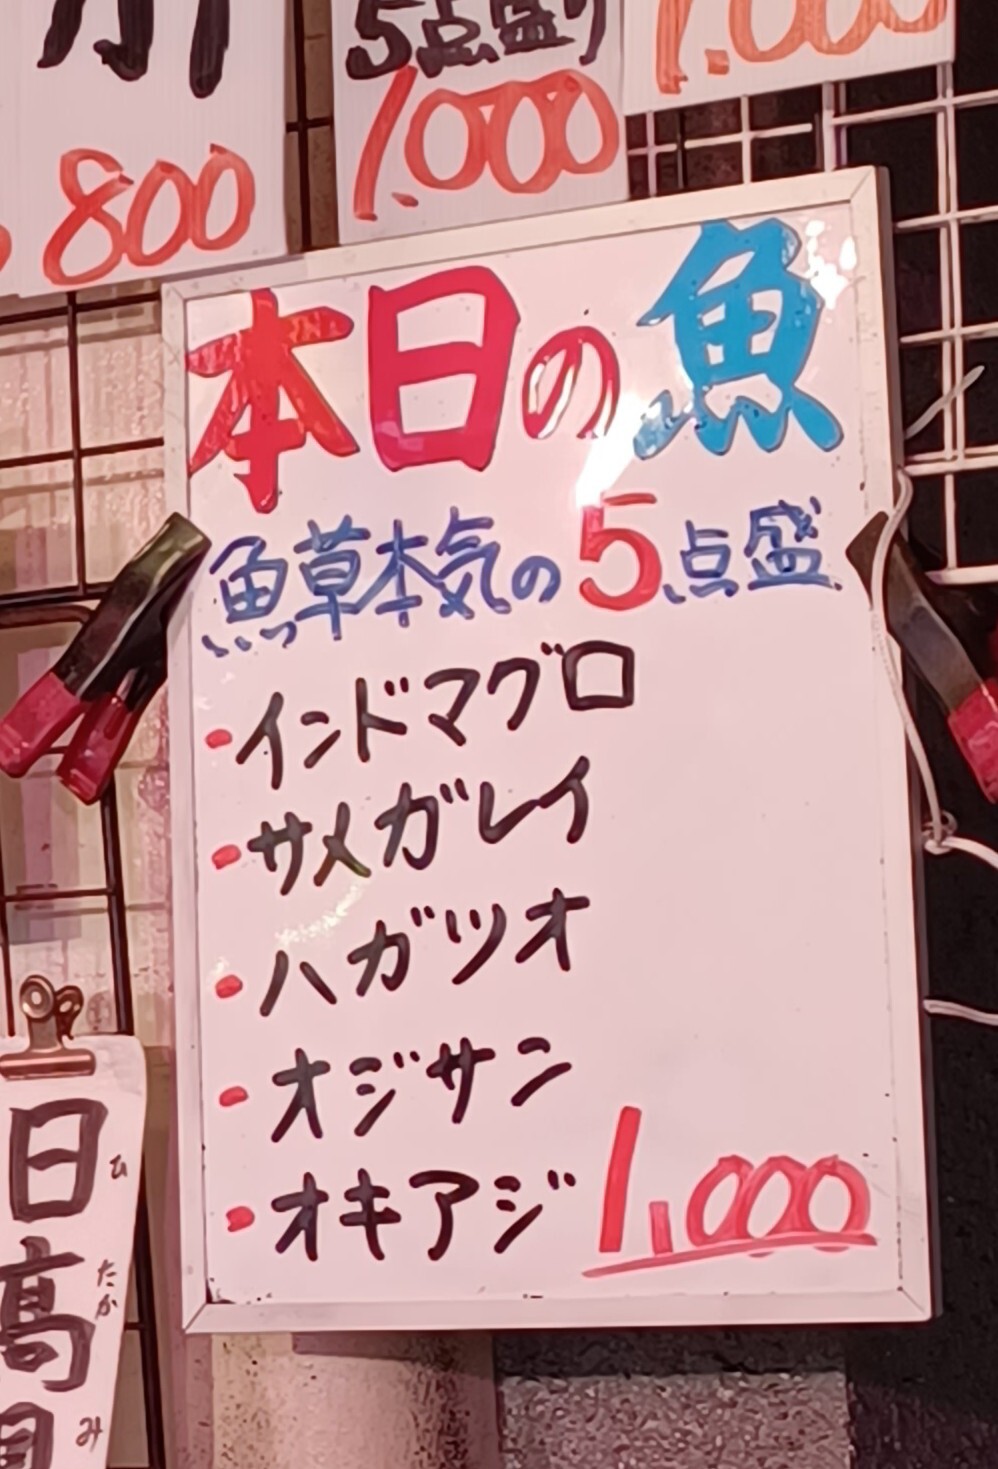 5点盛り
1.000
800
本日の魚
魚草本気の5点盛
・インドマグロ
・サメガレイ
・ハガツオ
・オジサン
・オキアジ 1,000
日高
ひ
たか
み